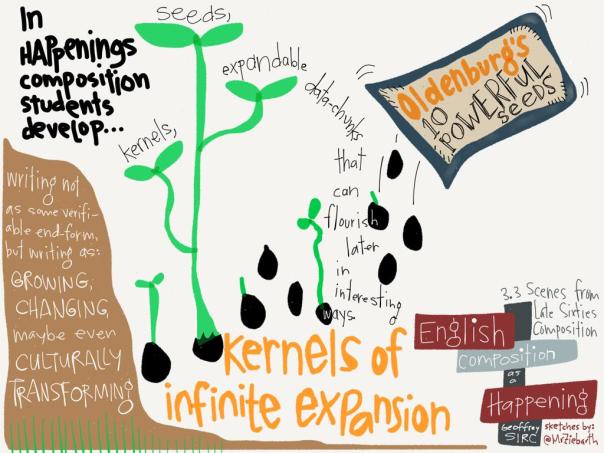 In
HAppenings
composition
students
develop...
seeds,
expandable
data-chunks
kernels,
that
can
flourish
later
in
interesting
ways.
Oldenburg's
10
POWERFUL
SEEDS
writing not
as some verifi-
able end-form,
but writing as:
GROWING,
CHANGING,
maybe even
CULTURALLY
TRANSFORMING
Kernels of
infinite expansion
3.3 Scenes from
Late Sixties
Composition
English
composition
as
a
Happening
Geoffrey
SIRC
sketches by:
@MrZiebarth